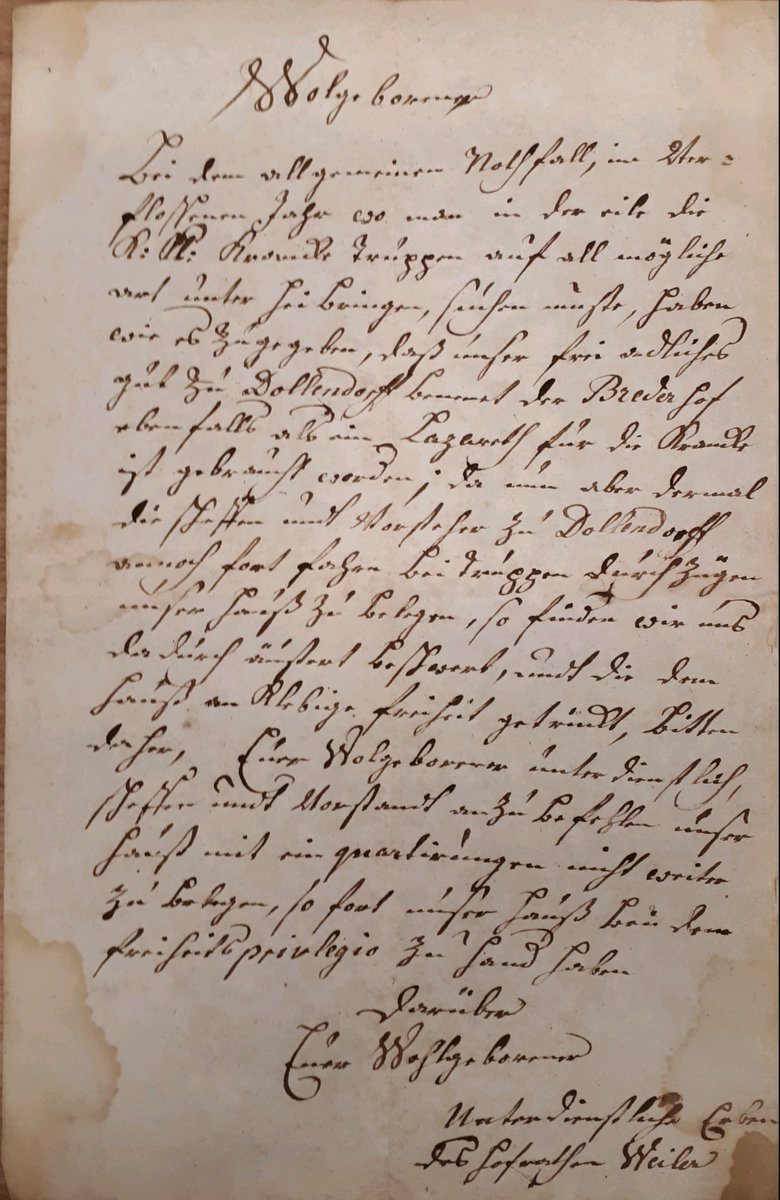 Wolgebohrner
Bei dem allgemeinen Nothfall, im Ver=
flossenen Jahr wo man in der eile die
K: K: Krancke Truppen auf all mögliche
art unter hei bringen, suchen muste, haben
wir es zugegeben, daß unser frei adliches
gut zu Dollendorff bennet der Breder hof
ebenfalls als ein Lazareth für die Krancke
ist gebraucht worden; da nun aber dermal
die scheffen undt Vorsteher zu Dollendorff
annoch fort fahren bei Truppen durchzügen
unser hauß zu belegen, so finden wir uns
dadurch äusert beschwert, undt die dem
hauß an Klebige freiheit gekränkt, bitten
daher, Euer Wolgeborener unterdienstlich,
scheffen undt Vorstandt anzu befehlen unser
hauß mit ein quartirungen nicht weiter
zu belegen, so fort unser hauß beÿ dem
freiheits privlegio zu hand haben
darüber
Euer Wohlgeborener
Unterdienstliche Erben
des hofrathen Weiler